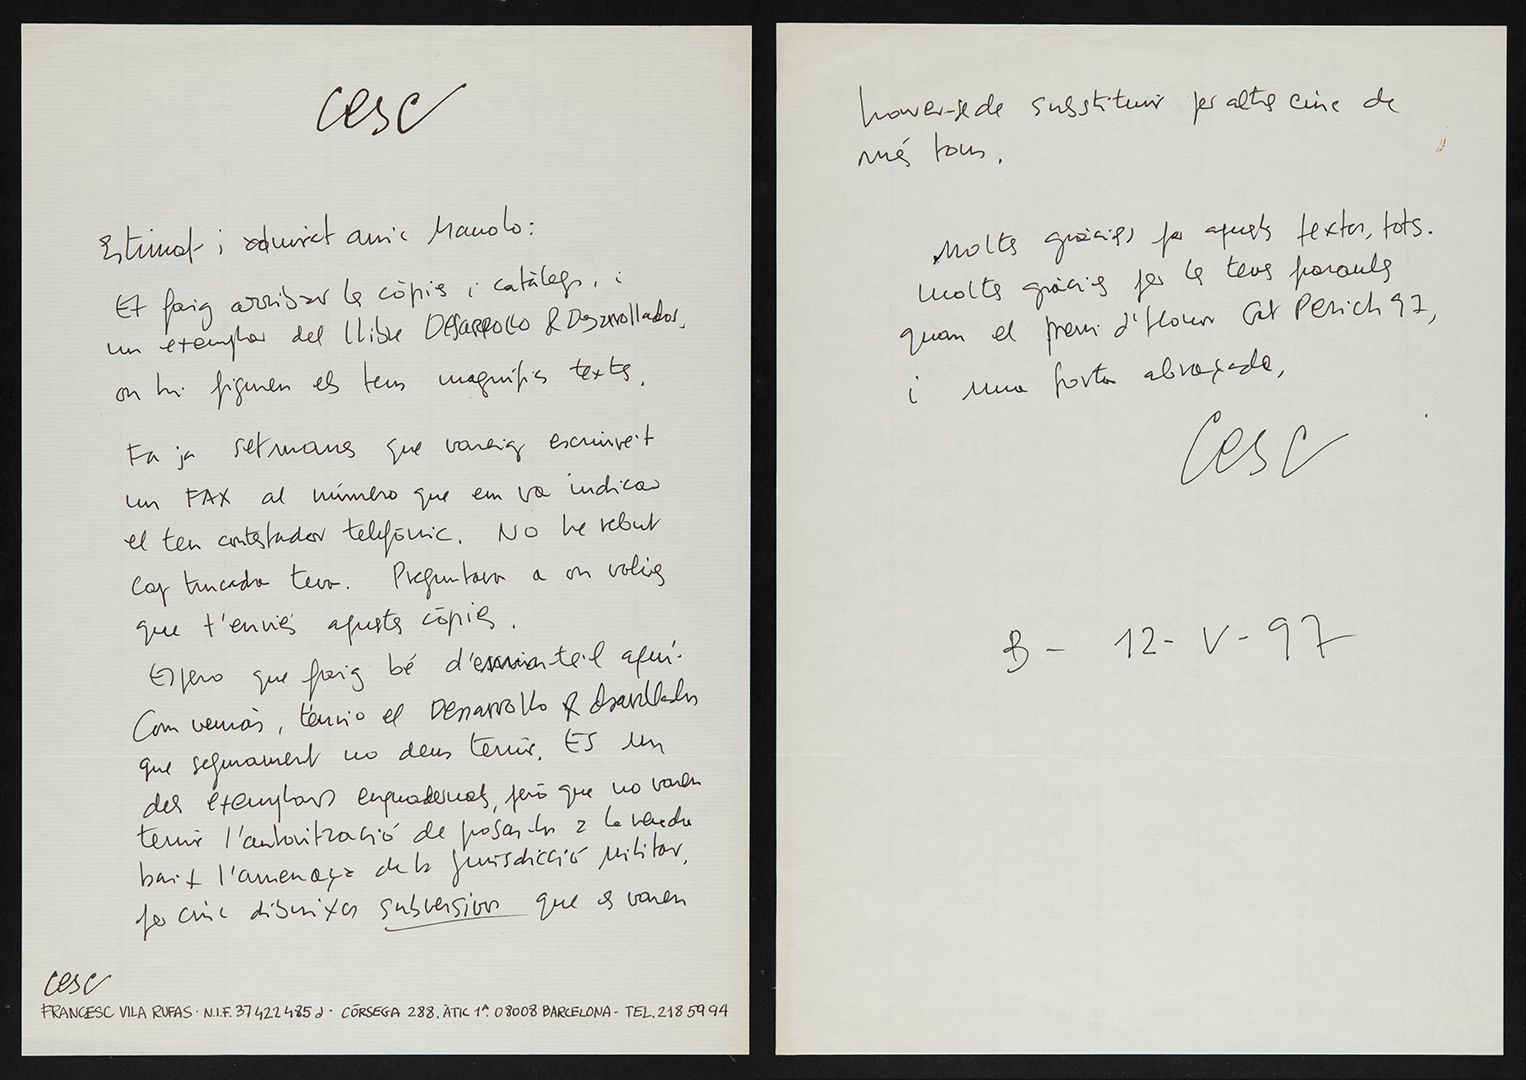 cesc
Estimat i admirat amic Manolo:
Et faig arribar les còpies i catàlegs, i
un exemplar del llibre Desarrollo & Desarrollados,
on hi figuren els teus magnífics textes.
Fa ja setmanes que vareig escriure't
un FAX al número que em va indicar
el teu contestador telefònic. No he rebut
cap trucada teva. Preguntava a on volies
que t'enviés aquestes còpies.
Espero que faig bé d'enviar-te-il aquí.
Com veuràs, t'envio el Desarrollo & Desarrollados
que segurament no deus tenir. ES un
dels exemplars enquadernats, però que no varen
tenir l'autorització de posar-los a la venda
baix l'amenaça de la jurisdicció militar,
per cinc dibuixos subversius que es varen
cesc
FRANCESC VILA RUFAS · N.I.F. 37422485 J · CÒRSEGA 288. ÀTIC 1ª. 08008 BARCELONA - TEL. 218 59 94
haver-se de substituir per altres cinc de
més tous.
Moltes gràcies per aquests textos, tots.
Moltes gràcies per les teves paraules
quan el premi d'honor Gat Perich 97,
i una forta abraçada,
cesc
B - 12 - V - 97